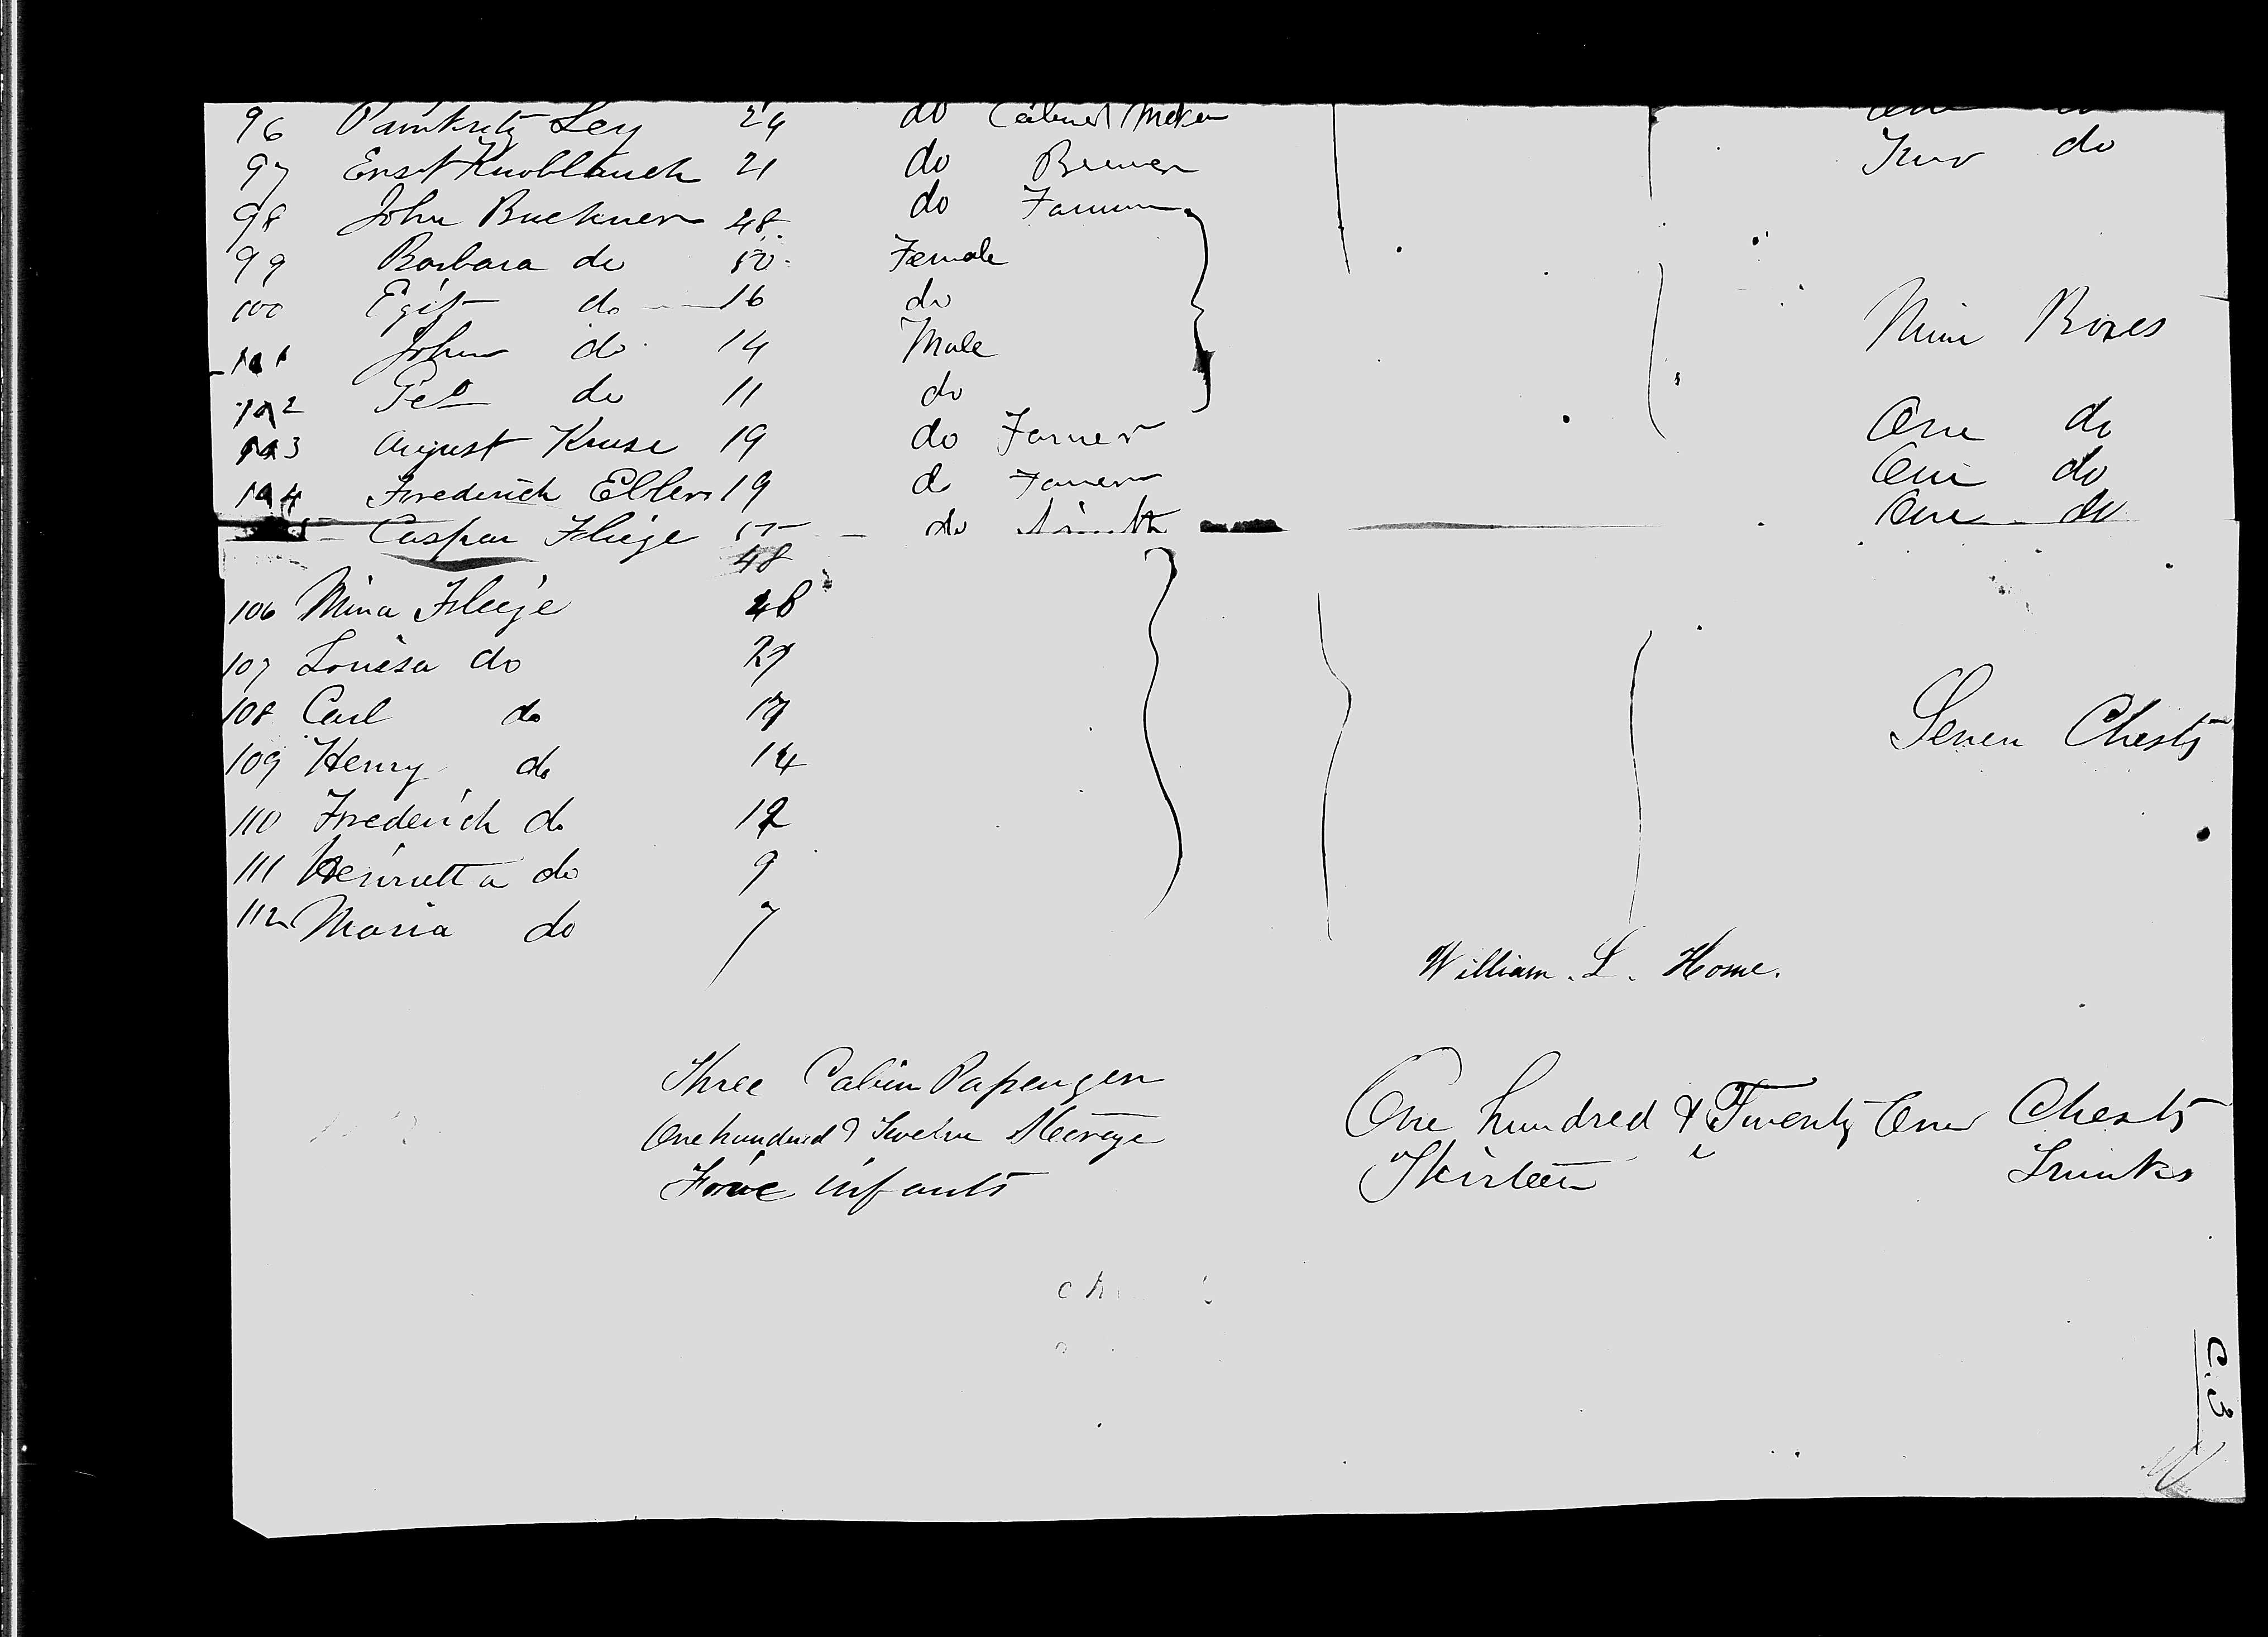 96 Pankratz Ley 24 do Cabinet Maker One do
97 Ernst Knoblauch 21 do Brewer Two do
98 John Buckner 48 do Farmer
99 Barbara do 50 Female
100 Egit do 16 do
101 John do 14 Male Nine Boxes
102 Geo do 11 do
103 August Kruse 19 do Farmer One do
104 Frederich Ellers 19 do Farmer One do
Caspar Fliege do Smith One do
48
106 Mina Fliege 48
107 Louisa do 27
108 Carl do 17 Seven Chests
109 Henry do 14
110 Frederich do 12
111 Henrietta do 9
112 Maria do 7
William. L. Home.
Three Cabin Passengers
One hundred & Twelve Steerage One hundred & Twenty One Chests
infants Thirteen Trunks
C.3